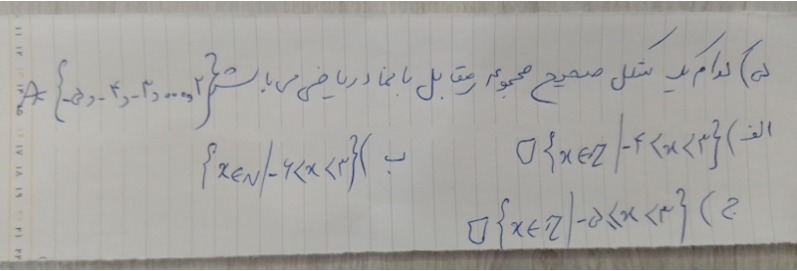 ۵) کدام یک شکل صحیح مجموعه مقابل با نماد ریاضی می باشد A={-۵,-۴,-۳,...,۲}
الف) {x∈Z|-۴<x<۳} □ ب) {x∈N|-۶<x<۳}
ج) {x∈Z|-۵≤x<۳} □